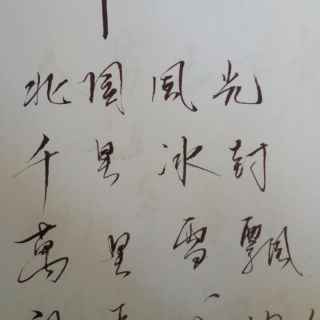 北国风光
千里冰封
萬里雪飘